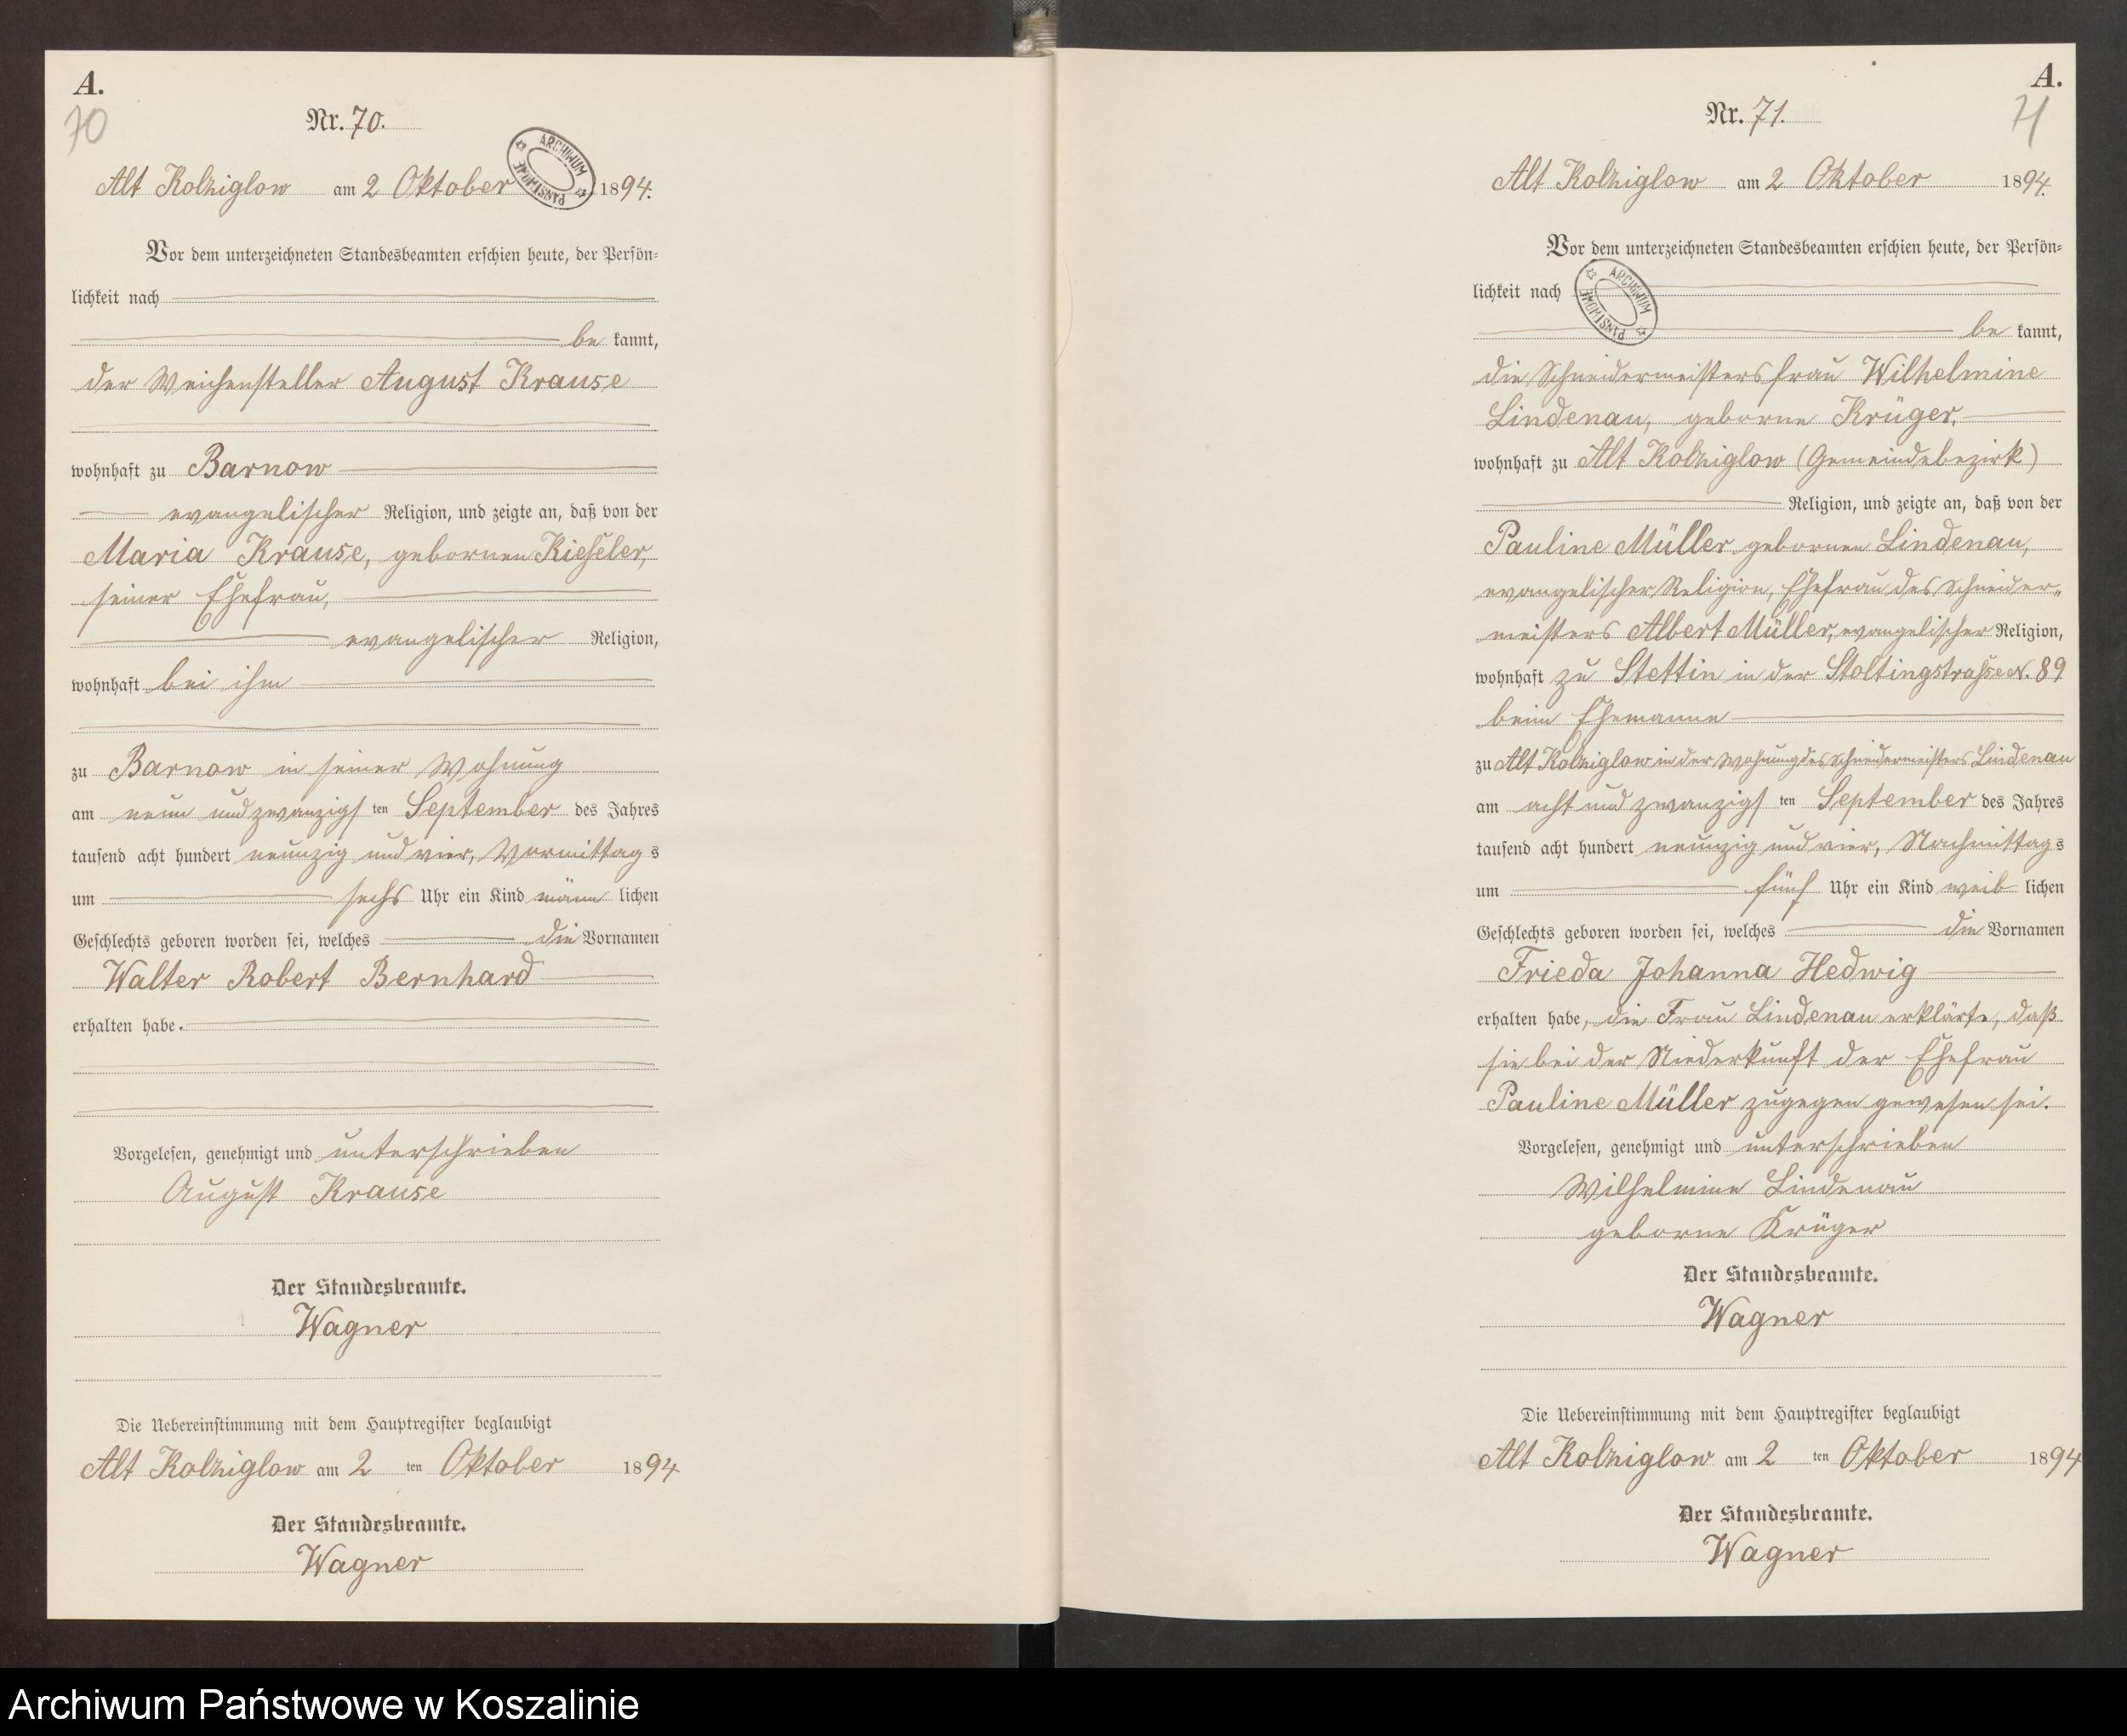 A.
70
Nr. 70.
ARCHIWUM PAŃSTWOWE
Alt Kolziglow am 2 Oktober 1894.
Vor dem unterzeichneten Standesbeamten erschien heute, der Persön-
lichkeit nach
be kannt,
der Weichensteller August Krause
wohnhaft zu Barnow
evangelischer Religion, und zeigte an, daß von der
Maria Krause, gebornen Kieseler,
seiner Ehefrau,
evangelischer Religion,
wohnhaft bei ihm
zu Barnow in seiner Wohnung
am neun und zwanzigs ten September des Jahres
tausend acht hundert neunzig und vier, Vormittag s
um sechs Uhr ein Kind männ lichen
Geschlechts geboren worden sei, welches die Vornamen
Walter Robert Bernhard
erhalten habe.
Vorgelesen, genehmigt und unterschrieben
August Krause
Der Standesbeamte.
Wagner
Die Uebereinstimmung mit dem Hauptregister beglaubigt
Alt Kolziglow am 2 ten Oktober 1894
Der Standesbeamte.
Wagner
A.
71
Nr. 71.
Alt Kolziglow am 2 Oktober 1894.
Vor dem unterzeichneten Standesbeamten erschien heute, der Persön-
ARCHIWUM PAŃSTWOWE
lichkeit nach
be kannt,
die Schneidermeistersfrau Wilhelmine
Lindenau, geborne Krüger,
wohnhaft zu Alt Kolziglow (Gemeindebezirk)
Religion, und zeigte an, daß von der
Pauline Müller gebornen Lindenau,
evangelischer Religion, Ehefrau des Schneider-
meisters Albert Müller, evangelischer Religion,
wohnhaft zu Stettin in der Stoltingstrasse N. 89
beim Ehemanne
zu Alt Kolziglow in der Wohnung des Schneidermeisters Lindenau
am acht und zwanzigs ten September des Jahres
tausend acht hundert neunzig und vier, Nachmittag s
um fünf Uhr ein Kind weib lichen
Geschlechts geboren worden sei, welches die Vornamen
Frieda Johanna Hedwig
erhalten habe, die Frau Lindenau erklärte, daß
sie bei der Niederkunft der Ehefrau
Pauline Müller zugegen gewesen sei.
Vorgelesen, genehmigt und unterschrieben
Wilhelmine Lindenau
geborne Krüger
Der Standesbeamte.
Wagner
Die Uebereinstimmung mit dem Hauptregister beglaubigt
Alt Kolziglow am 2 ten Oktober 1894
Der Standesbeamte.
Wagner
Archiwum Państwowe w Koszalinie